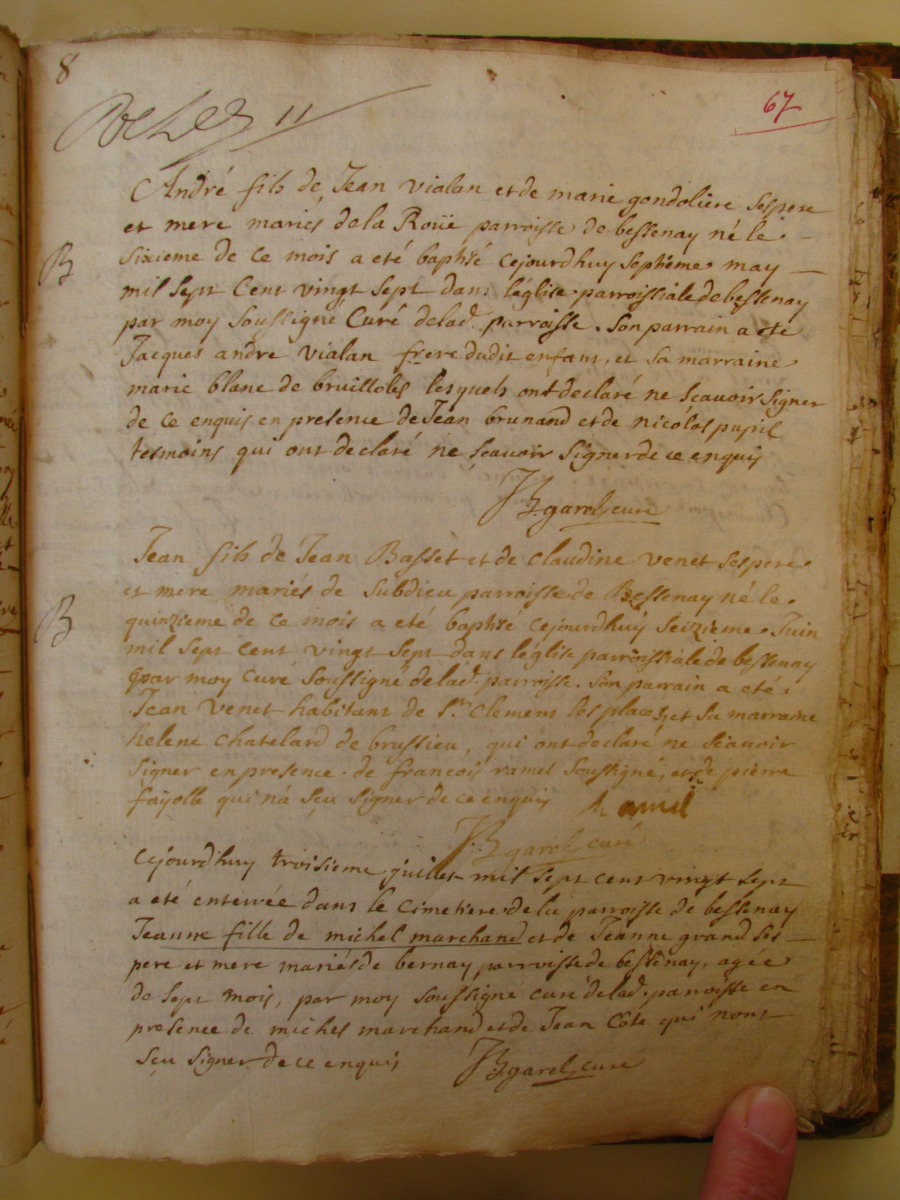 8
67
11
André fils de Jean Vialan et de marie gondoliere ses pere
et mere mariés de la Roüe parroisse de bessenay né le
B
sixieme de ce mois a eté baptisé cejourdhuy septieme may
mil sept Cent vingt sept dans léglise parroissiale de bessenay
par moy soussigné Curé delad. parroisse. Son parrain a eté
Jacques andre vialan frere dudit enfant, et sa marraine
marie blanc de brulloles lesquels ont declaré ne scavoir signer
de ce enquis en presence de Jean brunand et de nicolas pupil
tesmoins qui ont declaré ne scavoir signer de ce enquis
garel curé
Jean fils de Jean Basset et de claudine venet ses pere
et mere mariés de subdieu parroisse de Bessenay né le
B
quinzieme de ce mois a eté baptisé cejourdhuy seizieme Juin
mil sept cent vingt sept dans léglise parroissiale de bessenay
par moy curé soussigné delad. parroisse. Son parrain a eté
Jean venet habitant de st. Clement les places, et sa marraine
helene chatelard de brussieu, qui ont declaré ne scavoir
signer en presence de francois ramel soussigné, et de pierre
fayolle qui n'a sçu signer de ce enquis Ramel
garel curé
Cejourdhuy troisieme juillet mil sept cent vingt sept
a eté enterrée dans le cimetiere de la parroisse de bessenay
Jeanne fille de michel marchand et de Jeanne grand ses
pere et mere mariés de bernay parroisse de bessenay, agée
de sept mois, par moy soussigné curé delad. parroisse en
presence de michel marchand et de Jean Côte qui n'ont
sçu signer de ce enquis garel curé